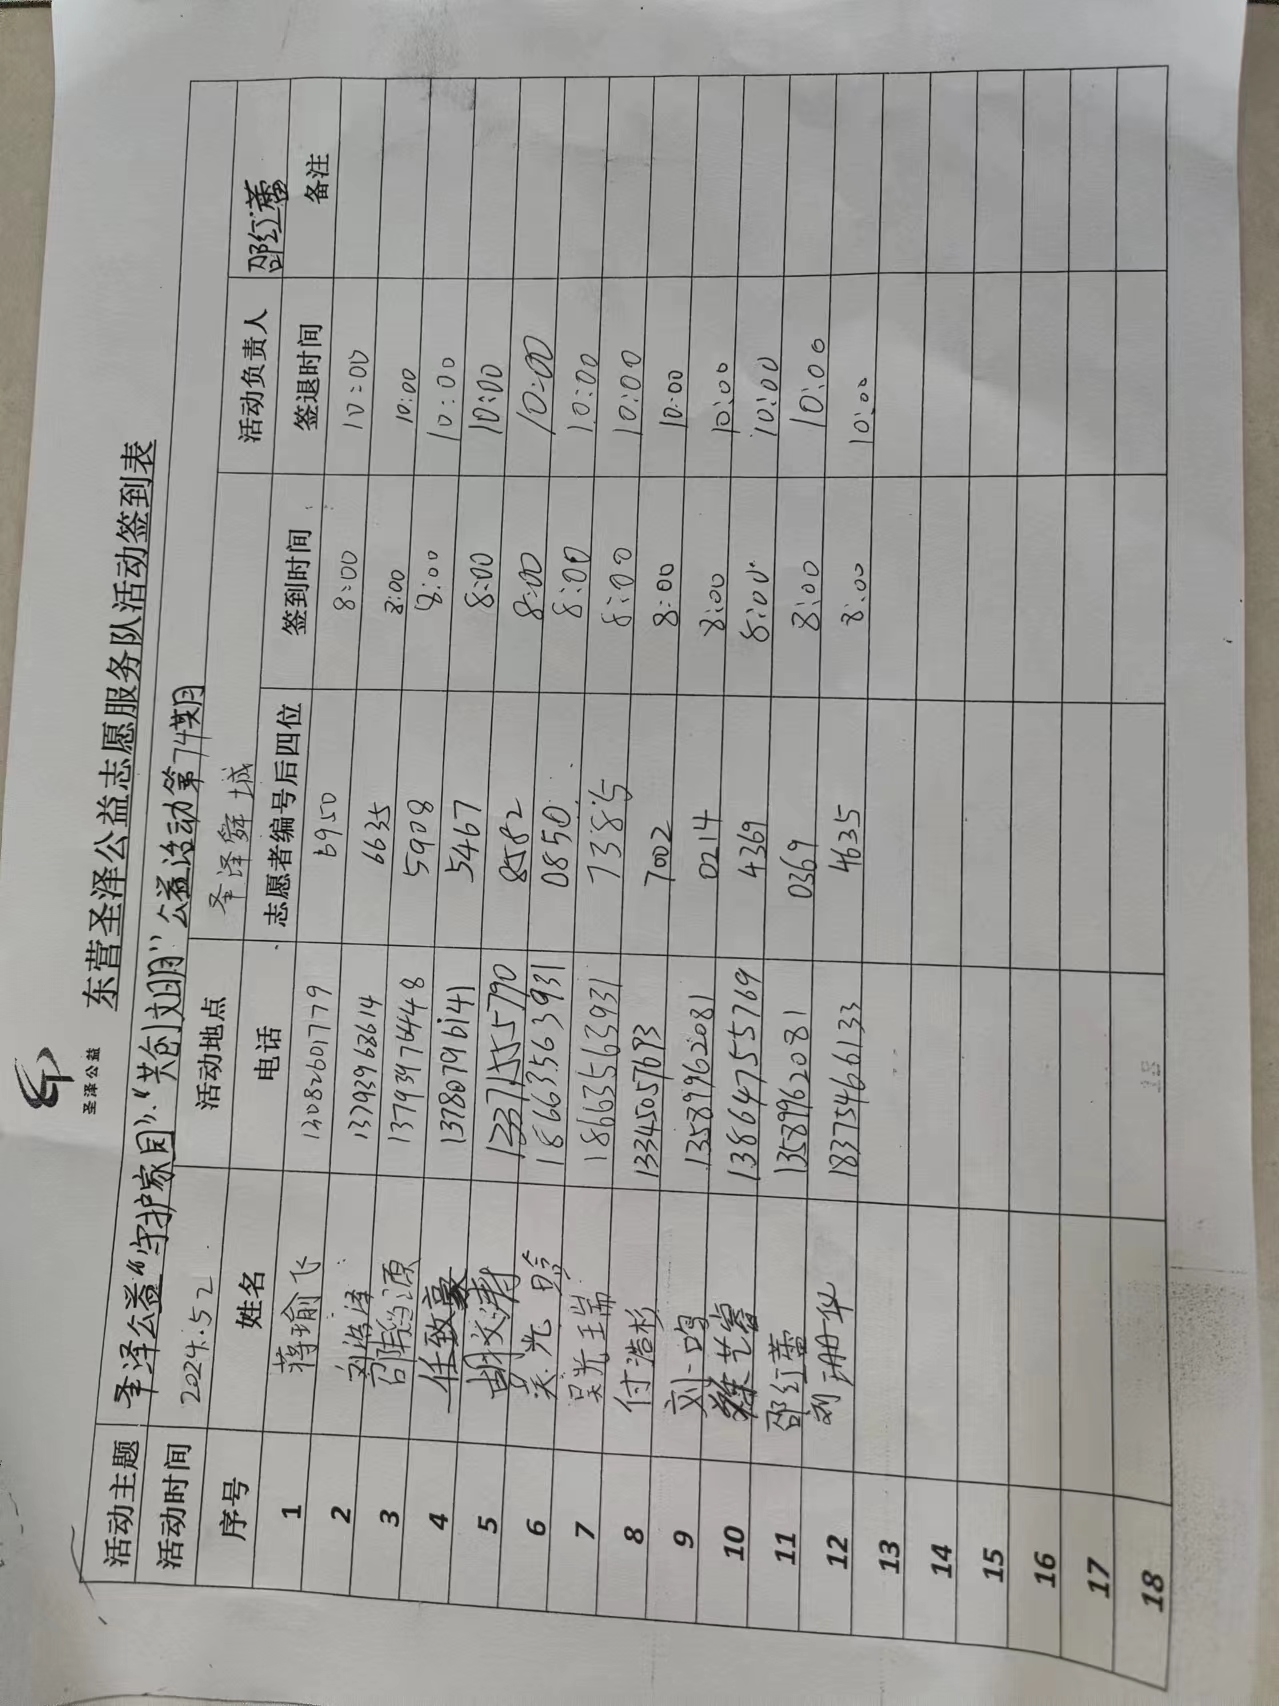 圣泽公益
东营圣泽公益志愿服务队活动签到表
活动主题 圣泽公益“守护家园”、“共创文明”公益活动第74期
活动时间 2024.5 2 活动地点 圣泽舜城 活动负责人 邵红蕾
序号 姓名 电话 志愿者编号后四位 签到时间 签退时间 备注
1 蒋瑜飞 13082601779 6950 8:00 10:00
2 刘浩泽 13793968614 6635 8:00 10:00
3 邵韵源 13793976448 5908 8:00 10:00
4 任致豪 13780796141 5467 8:00 10:00
5 胡文涛 13371555790 8582 8:00 10:00
6 吴光晗 18663563931 0850 8:00 10:00
7 吴光瑞 18663563931 7385 8:00 10:00
8 付浩杉 13345057673 7002 8:00 10:00
9 刘一鸣 13589962081 0214 8:00 10:00
10 徐艺睿 13864755769 4369 8:00 10:00
11 邵红蕾 13589962081 0369 8:00 10:00
12 刘珊华 18375466133 4635 8:00 10:00
13
14
15
16
17
18